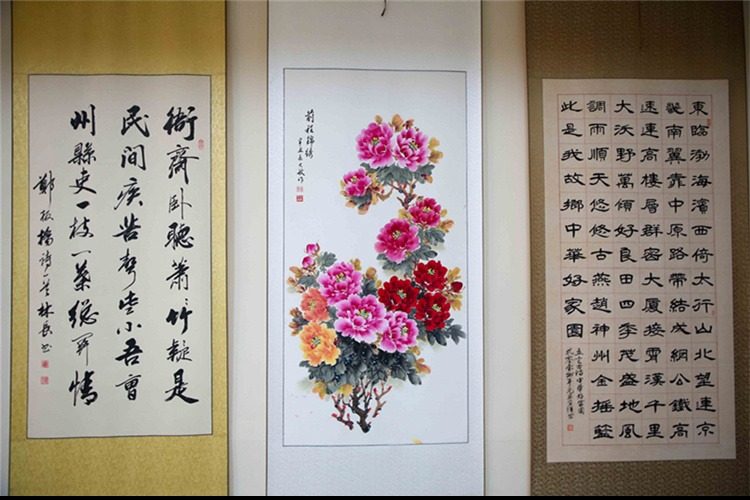 衙齋卧聽蕭〻竹疑是
民間疾苦聲些小吾曹
州縣吏一枝一葉總關情
鄭板橋詩一首林長書
前程錦繡
東臨渤海濱西倚太行山北望連京
冀南翼靠中原路帶結成網公鐵高
速連高樓層群密大廈接霄漢千里
大沃野萬傾好良田四季茂盛地風
調雨順天悠悠古燕趙神州金搖籃
此是我故鄉中華好家園